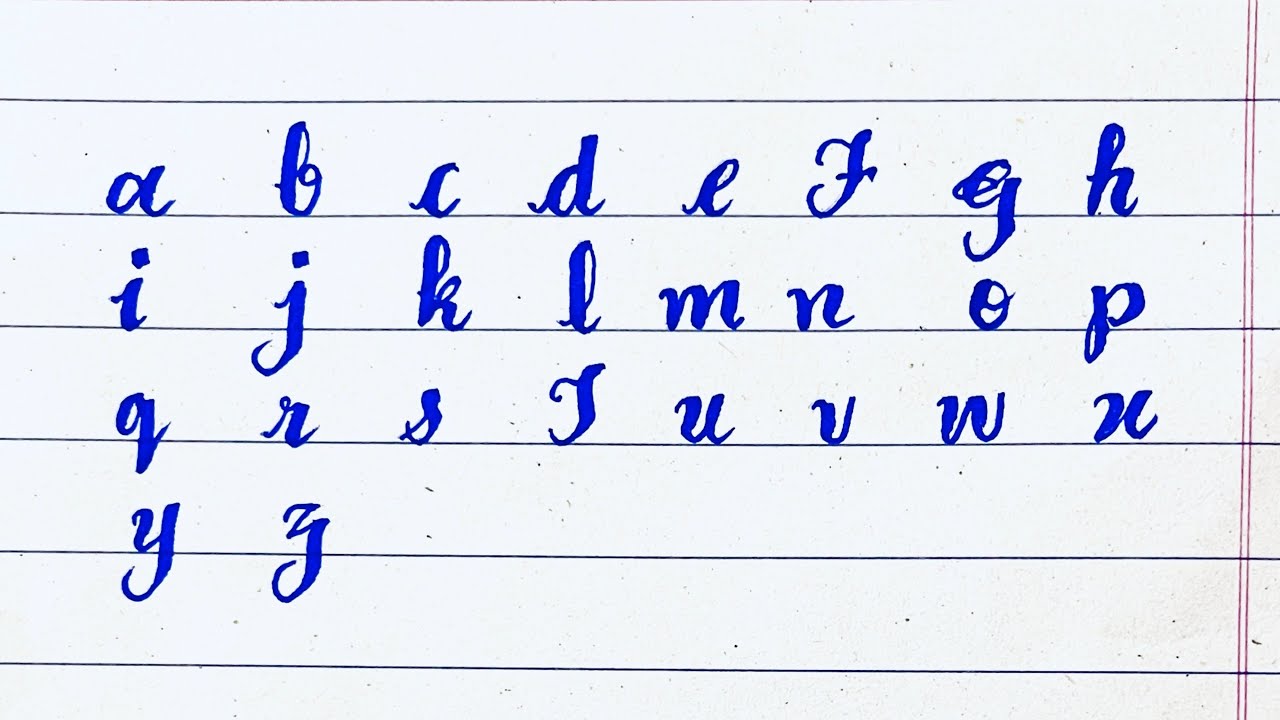 a b c d e F g h
i j k l m n o p
q r s T u v w x
y z